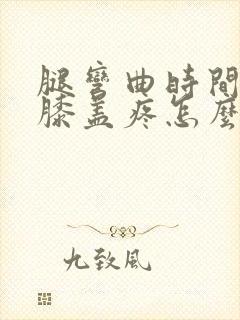 腿彎曲時間
膝盖疼怎麽
九致風